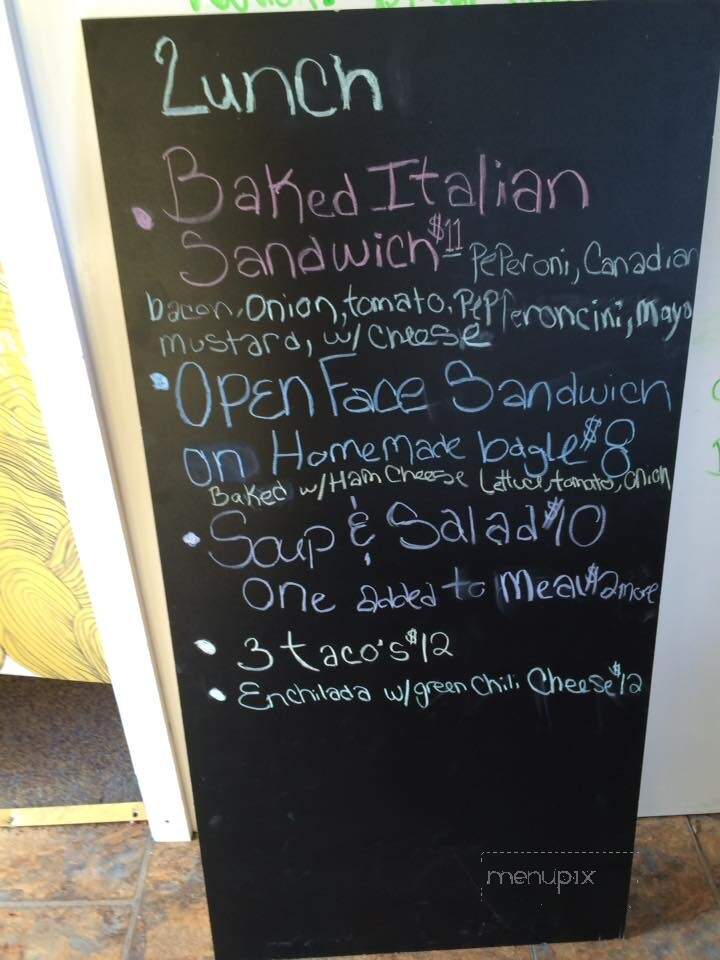 Lunch
• Baked Italian
Sandwich $11 - PePeroni, Canadian
bacon, Onion, tomato, PePPeroncini, Mayo
mustard, w/ Cheese
• OPen Face Sandwich
on HomeMade bagle $8
Baked w/Ham Cheese Lattuce, tomato, onion
• Soup & Salad $10
One added to Meal $2 more
• 3 taco's $12
• Enchilada w/green Chili Cheese $12
menupix